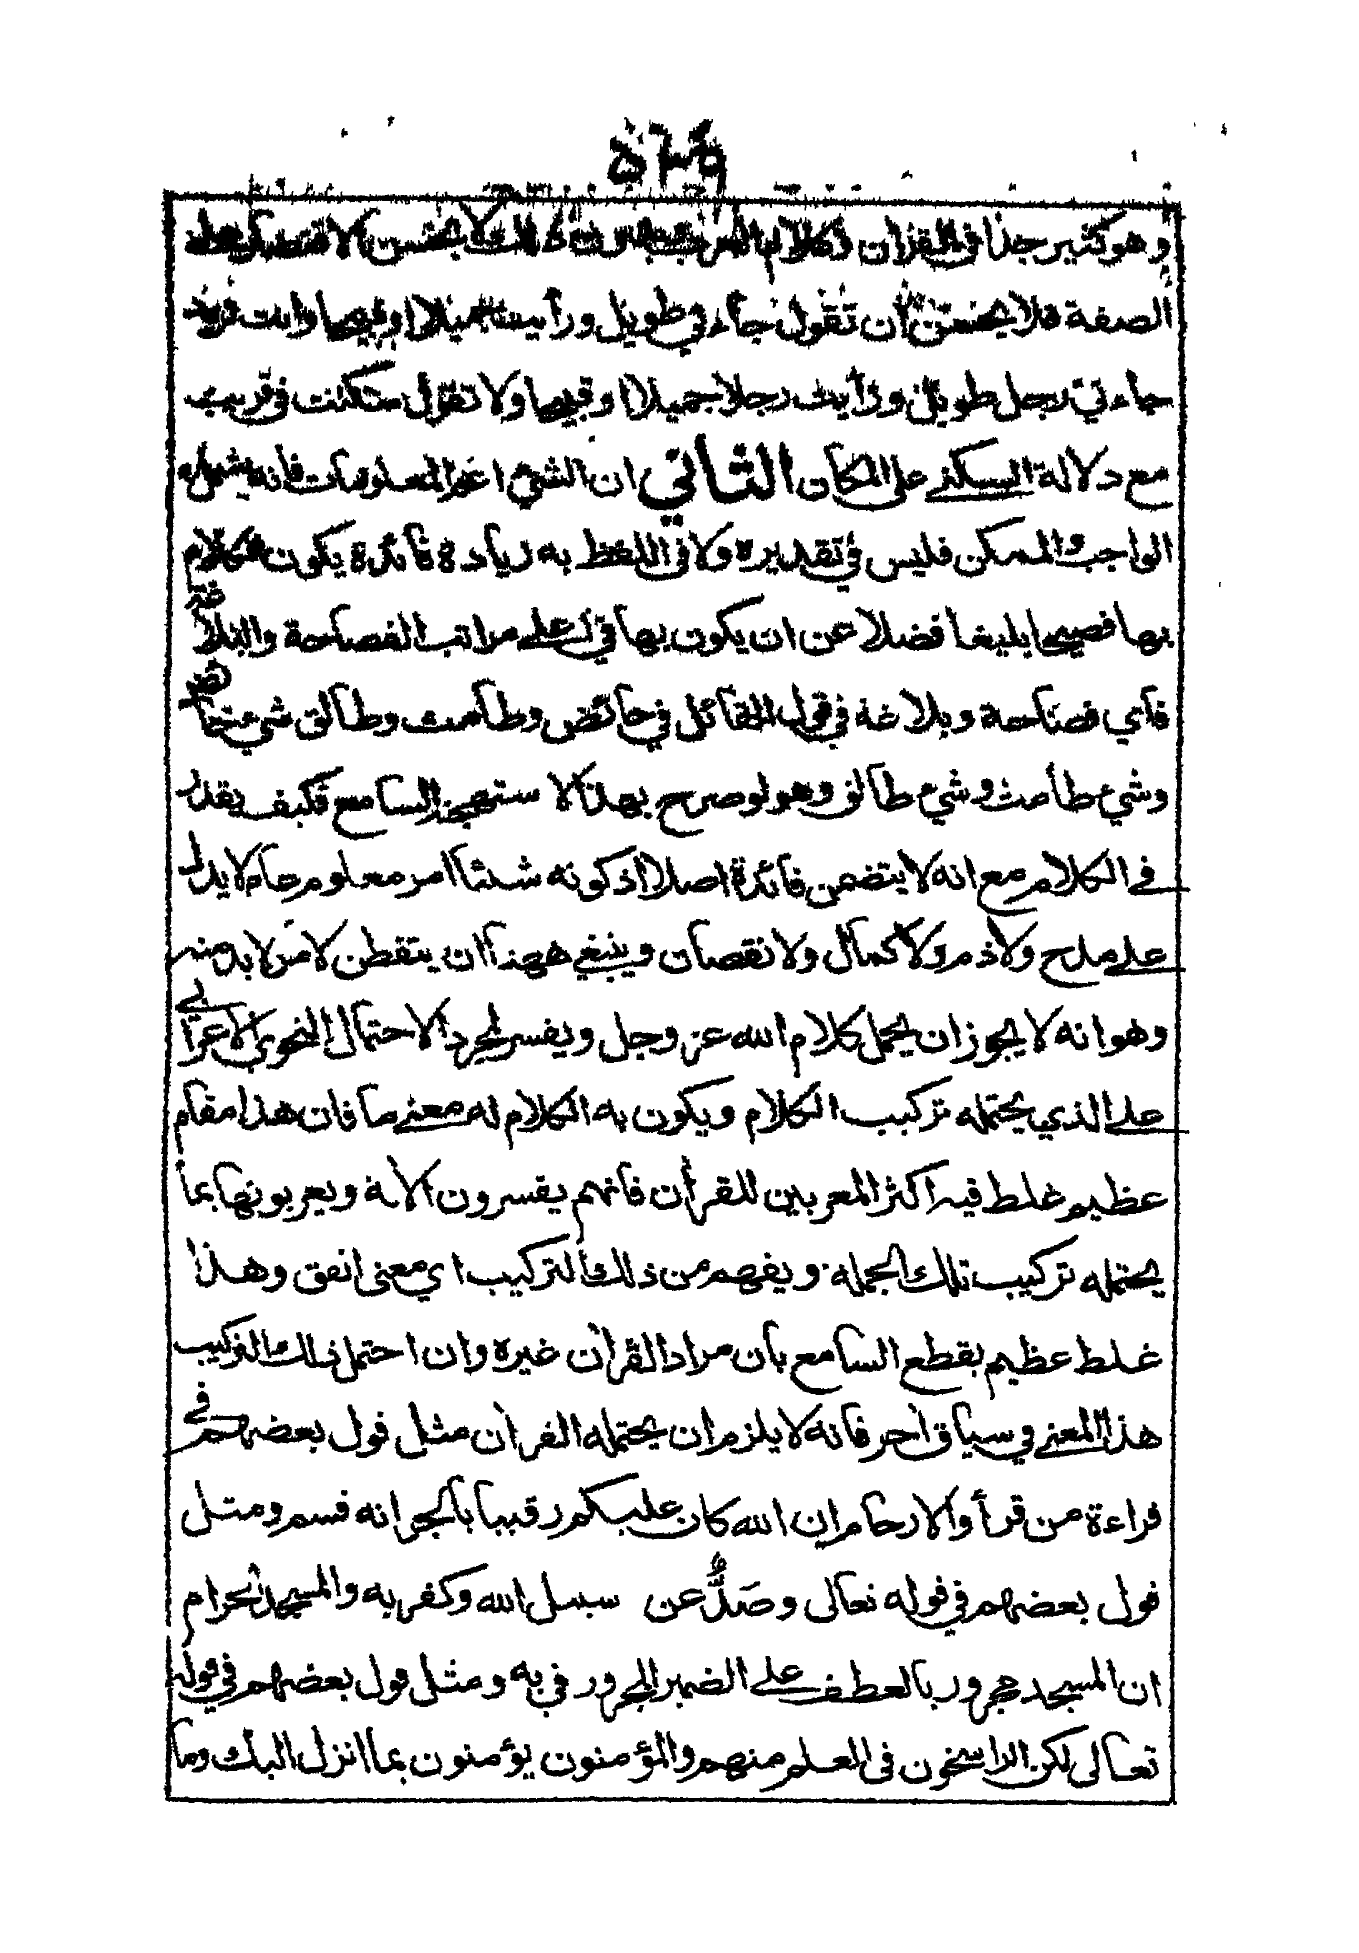 وهو كثير جدا في القرآن وكلام العرب بدون ذلك لا يحسن الاقتصار على
الصفة فلا يحسن أن تقول جاءني طويل ورأيت جميلا او قبيحا وانت تريد
جاءني رجل طويل ورأيت رجلا جميلا او قبيحا ولا تقول سكنت في قريب
مع دلالة السكنى على المكان الثاني ان الشيء اعم المعلومات فانه يشمل
الواجب والممكن فليس في تقديره ولا في اللفظ به زيادة فائدة يكون الكلام
بها فصيحا بليغا فضلا عن ان يكون بها في اعلى مراتب الفصاحة والبلاغة
فأي فصاحة وبلاغة في قول القائل في حائض وطامث وطالق شيء حائض
وشيء طامث وشيء طالق وهو لو صرح بهذا لا ستهجنه السامع فكيف يقدر
في الكلام مع انه لا يتضمن فائدة اصلا اذ كونه شيئا امر معلوم عام لا يدل
على مدح ولا ذم ولا كمال ولا نقصان وينبغي ههنا ان يتفطن لامر لا بد منه
وهو انه لا يجوز ان يحمل كلام الله عز وجل ويفسر لمجرد الاحتمال النحوي الاعرابي
على الذي يحتمله تركيب الكلام ويكون به الكلام له معنى ما فان هذا مقام
عظيم غلط فيه اكثر المعربين للقرآن فانهم يفسرون الآية ويعربونها بما
يحتمله تركيب تلك الجملة ويفهم من ذلك التركيب اي معنى اتفق وهذا
غلط عظيم يقطع السامع بان مراد القرآن غيره وان احتمل ذلك التركيب
هذا المعنى في سياق آخر فانه لا يلزم ان يحتمله القرآن مثل قول بعضهم في
قراءة من قرأ والارحام ان الله كان عليكم رقيبا بالجر انه قسم ومثل
قول بعضهم في قوله تعالى وصَدٌّ عن سبيل الله وكفر به والمسجد الحرام
ان المسجد مجرور بالعطف على الضمير المجرور في به ومثل قول بعضهم في قوله
تعالى لكن الراسخون في العلم منهم والمؤمنون يؤمنون بما انزل اليك وما